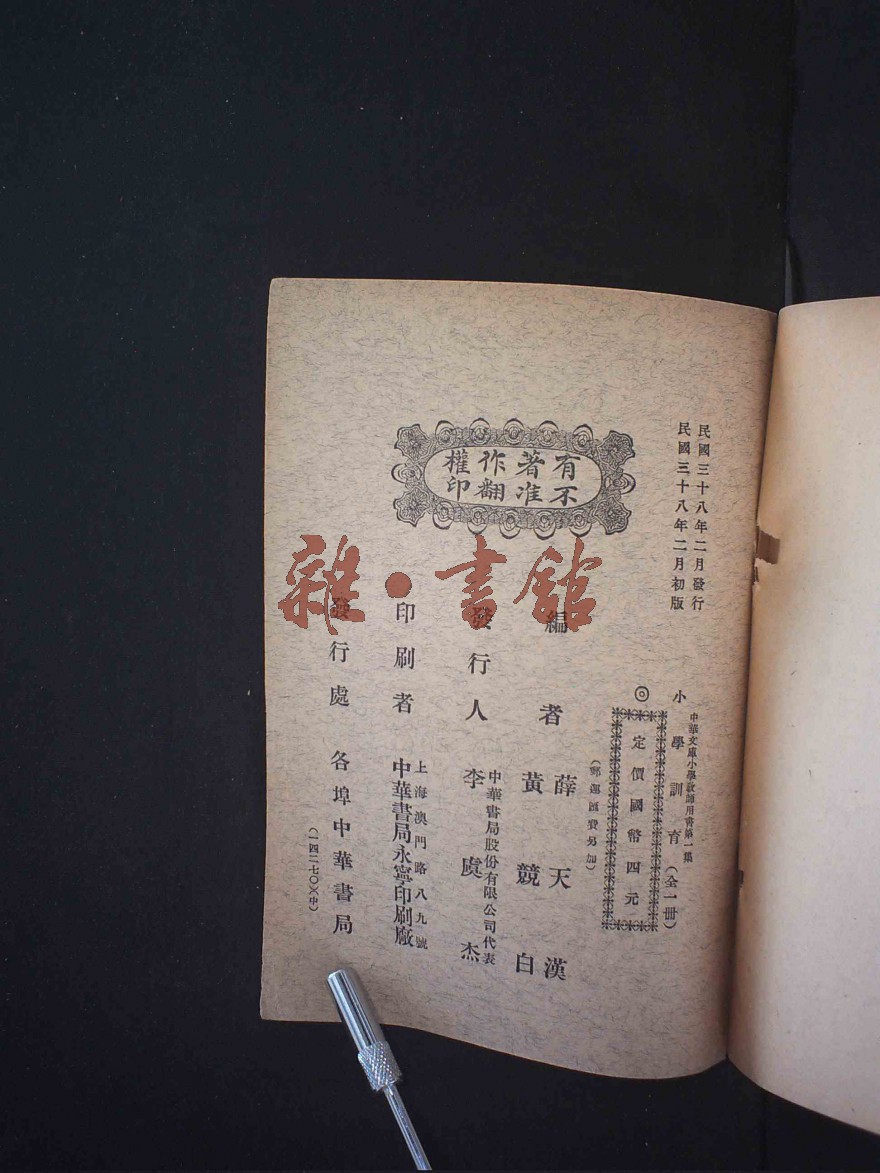 民國三十八年二月發行
民國三十八年二月初版
中華文庫小學教師用書第一集
小學訓育（全一冊）
◎定價國幣四元
（郵運匯費另加）
有著作權
不准翻印
編者 薛天漢
黃競白
發行人 李虞杰
中華書局股份有限公司代表
印刷者 中華書局永寧印刷廠
上海澳門路八九號
發行處 各埠中華書局
（一四二七〇）（中）
雜·書館